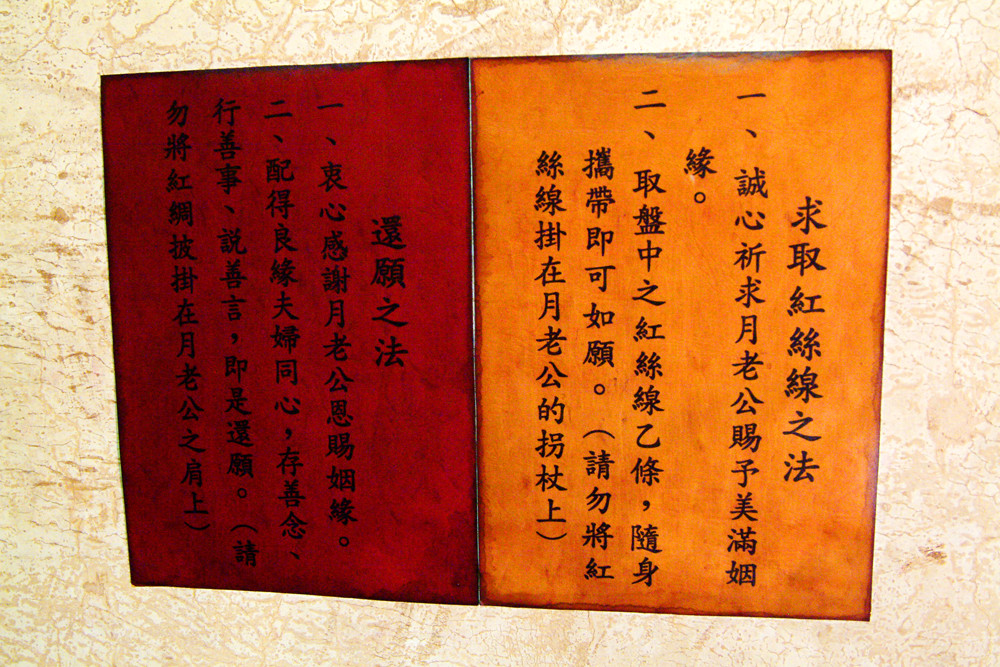 求取紅絲線之法
一、誠心祈求月老公賜予美滿姻
緣。
二、取盤中之紅絲線乙條，隨身
攜帶即可如願。（請勿將紅
絲線掛在月老公的拐杖上）
還願之法
一、衷心感謝月老公恩賜姻緣。
二、配得良緣夫婦同心，存善念、
行善事、説善言，即是還願。（請
勿將紅綢披掛在月老公之肩上）